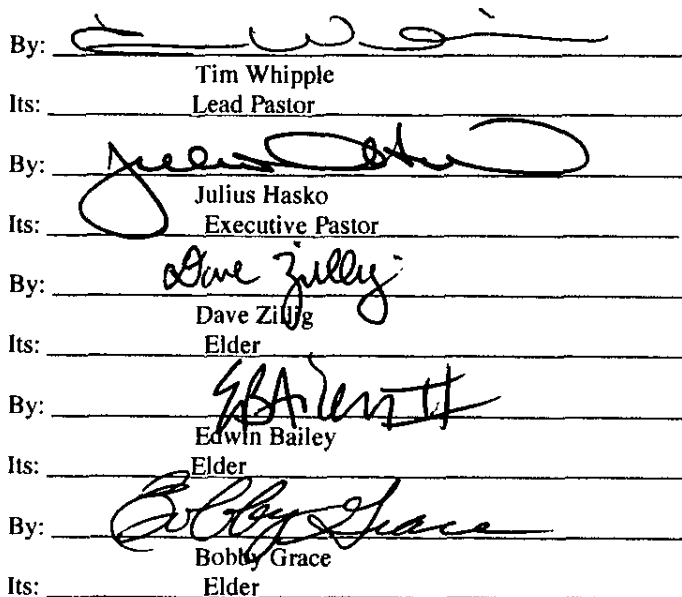 By:
Tim Whipple
Its: Lead Pastor
By: Julius Hasko
Julius Hasko
Its: Executive Pastor
By: Dave Zillig
Dave Zillig
Its: Elder
By: EBailey II
Edwin Bailey
Its: Elder
By: Bobby Grace
Bobby Grace
Its: Elder